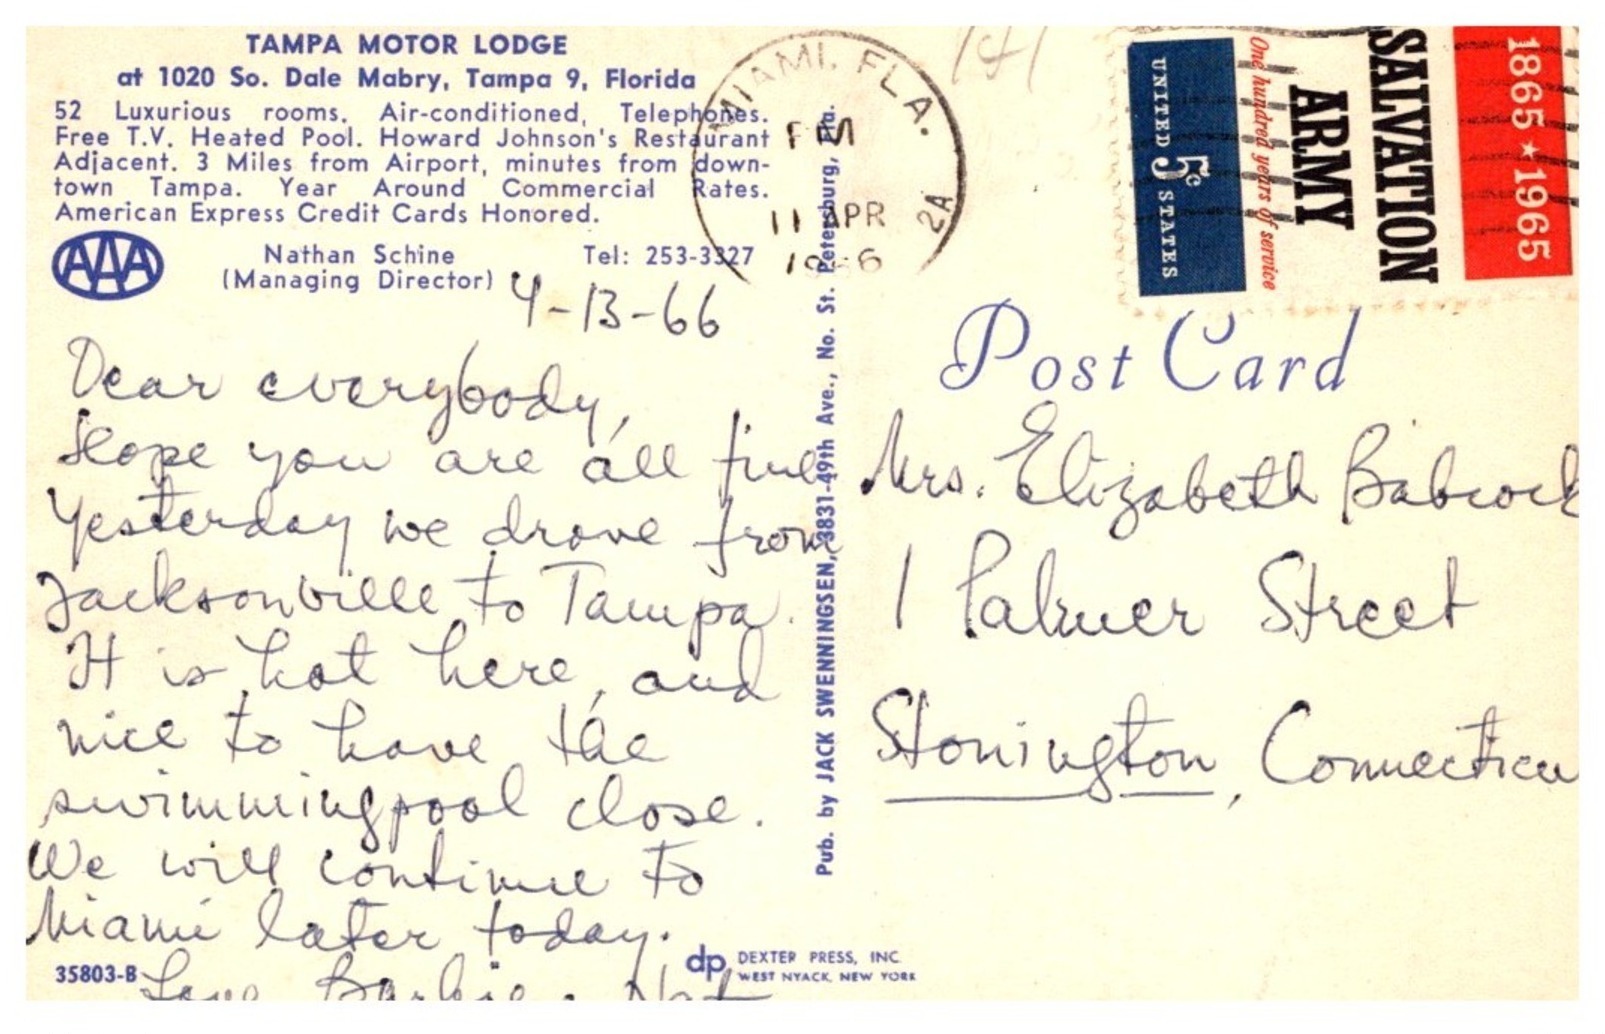 TAMPA MOTOR LODGE
at 1020 So. Dale Mabry, Tampa 9, Florida
52 Luxurious rooms. Air-conditioned, Telephones.
Free T.V. Heated Pool. Howard Johnson's Restaurant
Adjacent. 3 Miles from Airport, minutes from down-
town Tampa. Year Around Commercial Rates.
American Express Credit Cards Honored.
AAA
Nathan Schine
(Managing Director)
Tel: 253-3327
4-13-66
Dear everybody,
Hope you are all fine
Yesterday we drove from
Jacksonville to Tampa.
It is hot here, and
nice to have the
swimmingpool close.
We will continue to
Miami later today.
Love Barbie & Nat
35803-B
Pub. by JACK SWENNINGSEN, 3831-49th Ave., No. St. Petersburg, Fla.
dp DEXTER PRESS, INC.
WEST NYACK, NEW YORK
MIAMI, FLA.
PM
11 APR
1966
2A
141
UNITED 5c STATES
One hundred years of service
SALVATION
ARMY
1865 ★ 1965
Post Card
Mrs. Elizabeth Babcock
1 Palmer Street
Stonington, Connecticu